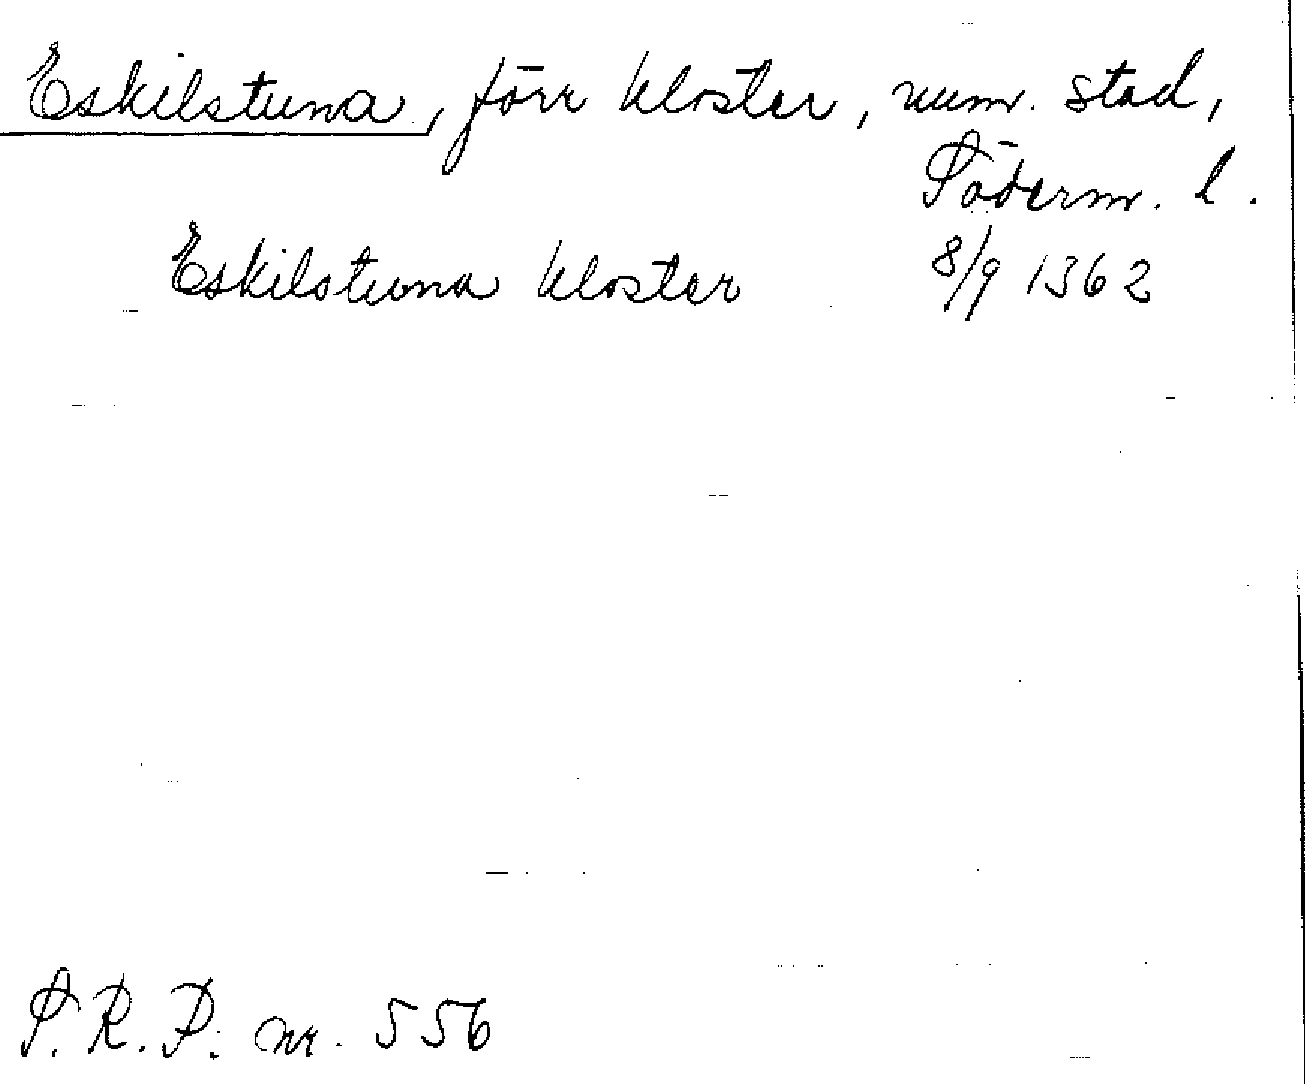 Eskilstuna, förr kloster, num. stad,
Söderm. l.
Eskilstuna kloster 8/9 1362
S.R.P. nr. 556